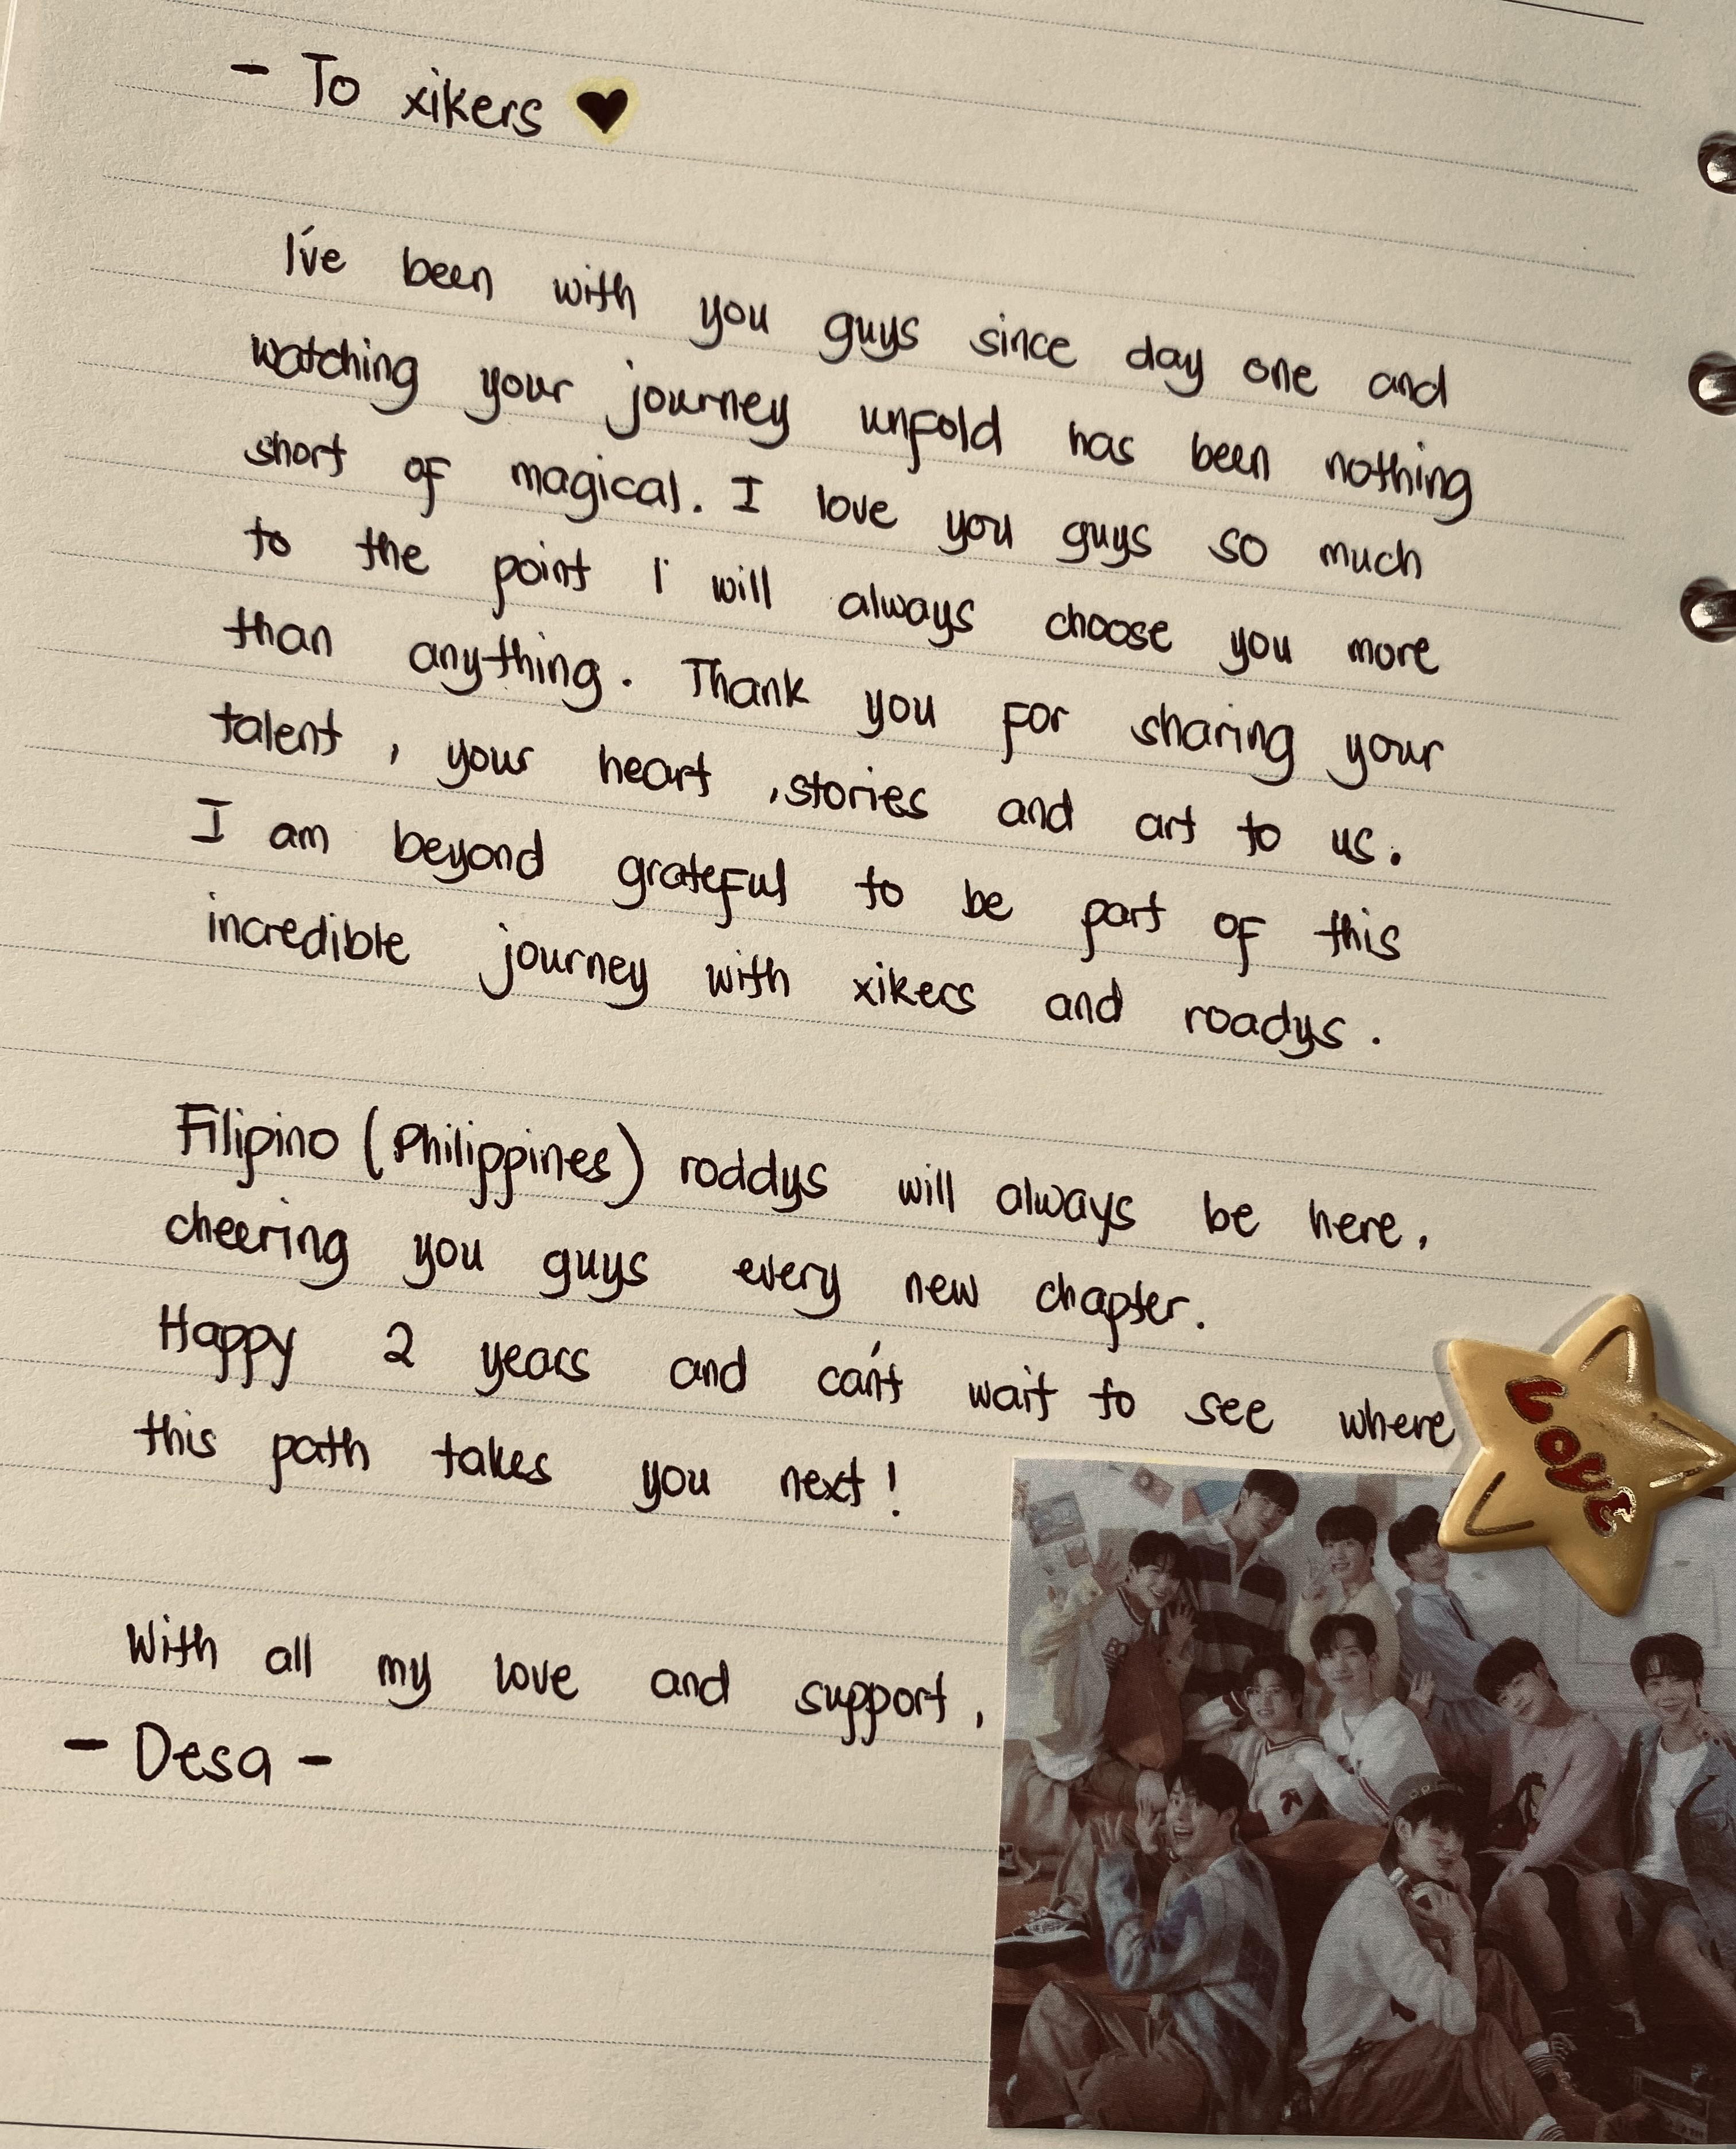 - To xikers ♥
I've been with you guys since day one and
watching your journey unfold has been nothing
short of magical. I love you guys so much
to the point I will always choose you more
than anything. Thank you for sharing your
talent, your heart, stories and art to us.
I am beyond grateful to be part of this
incredible journey with xikers and roadys.
Filipino (Philippines) roddys will always be here,
cheering you guys every new chapter.
Happy 2 years and can't wait to see where
this path takes you next!
LOVE
With all my love and support,
- Desa -